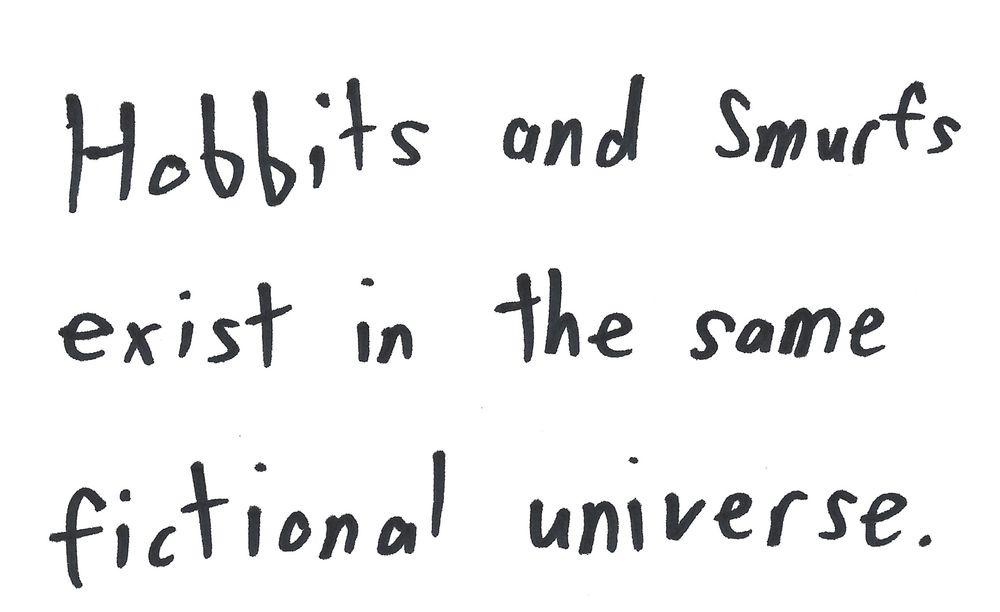 Hobbits and Smurfs
exist in the same
fictional universe.